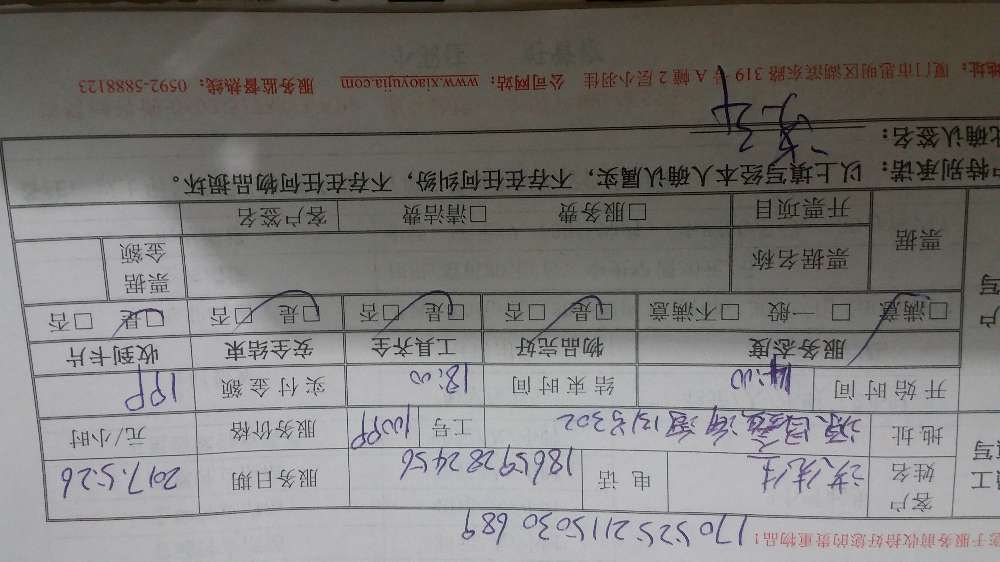 您于服务前收拾好您的贵重物品！ 1705252115030689
客户姓名 洪先生 电话 18659282456 服务日期 2017.5.26
地址 工号 服务价格 元/小时
开始时间 14:00 结束时间 18:00 实付金额
服务态度 物品完好 工具齐全 安全结束 收到卡片
□满意 □一般 □不满意 □是 □否 □是 □否 □是 □否 □是 □否
票据 票据名称 票据金额
开票项目 □服务费 □清洁费 客户签名
户特别承诺：以上填写经本人确认属实，不存在任何纠纷，不存在任何物品损坏。
此确认签名：
地址：厦门市思明区湖滨东路 319 号 A 幢 2 层小羽佳 公司网站：www.xiaoyujia.com 服务监督热线：0592-5888123